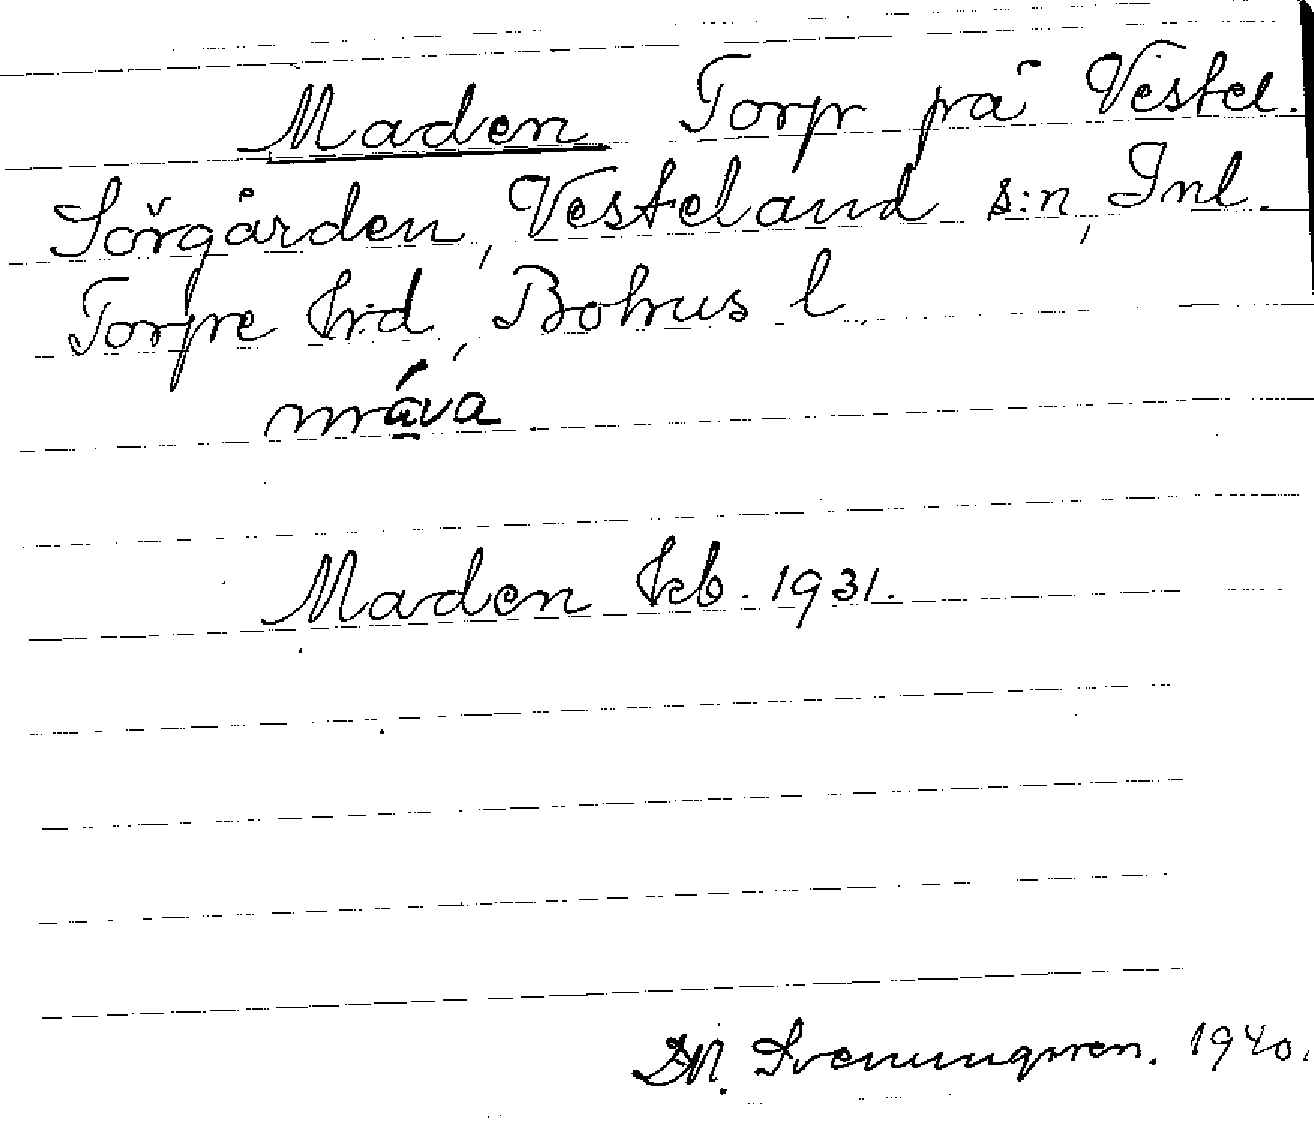 Maden Torp på Vestel.
Sörgården, Vesteland s:n, Inl.
Torpe hrd, Bohus l.
mrāva
Maden kb. 1931.
Svenungsson. 1940.